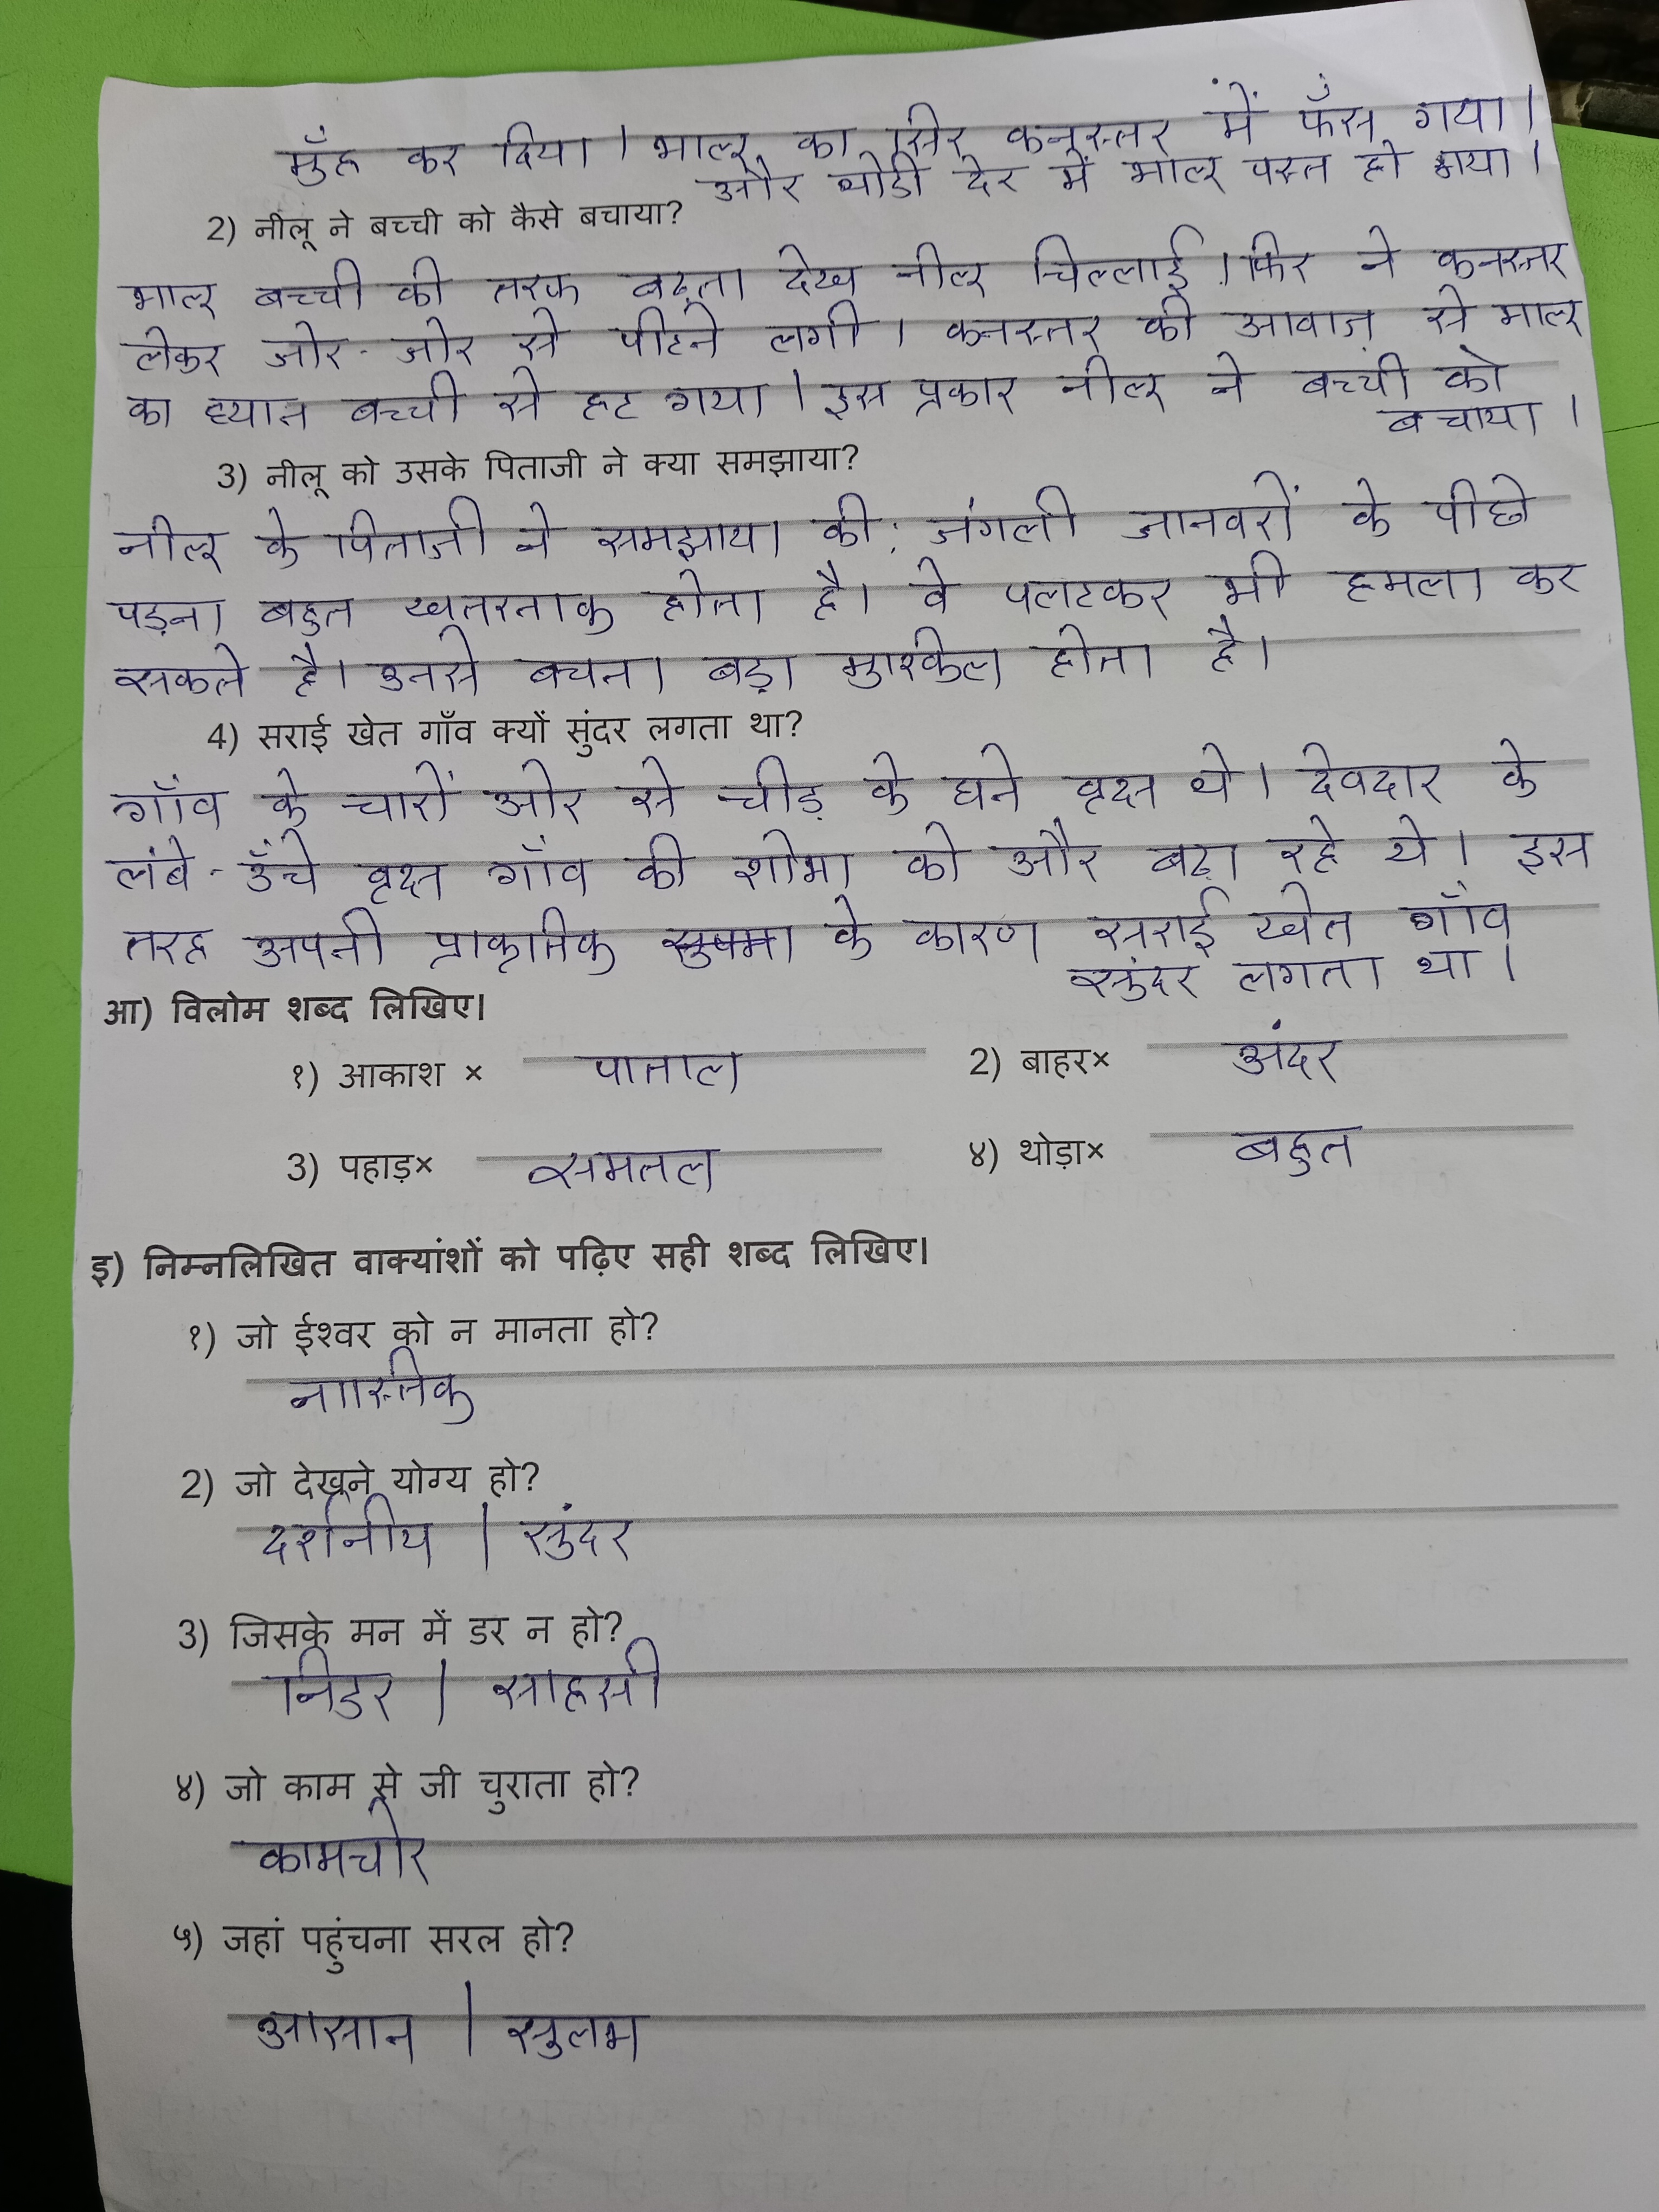 मुँह कर दिया। भालू का सिर कनस्तर में फँस गया।
और थोडी देर में भालू पस्त हो गया।
2) नीलू ने बच्ची को कैसे बचाया?
भालू बच्ची की तरफ बढ़ता देख नीलू चिल्लाई। फिर ने कनस्तर
लेकर जोर-जोर से पीटने लगी। कनस्तर की आवाज़ से भालू
का ध्यान बच्ची से हट गया। इस प्रकार नीलू ने बच्ची को
बचाया।
3) नीलू को उसके पिताजी ने क्या समझाया?
नीलू के पिताजी ने समझाया की, जंगली जानवरों के पीछे
पड़ना बहुत खतरनाक होता है। वे पलटकर भी हमला कर
सकते है। उनसे बचना बड़ा मुश्किल होता है।
4) सराई खेत गाँव क्यों सुंदर लगता था?
गाँव के चारों ओर से चीड़ के घने वृक्ष थे। देवदार के
लंबे-उँचे वृक्ष गाँव की शोभा को और बढ़ा रहे थे। इस
तरह अपनी प्राकृतिक सुषमा के कारण सराई खेत गाँव
सुंदर लगता था।
आ) विलोम शब्द लिखिए।
१) आकाश × पाताल 2) बाहर× अंदर
3) पहाड़× समतल ४) थोड़ा× बहुत
इ) निम्नलिखित वाक्यांशों को पढ़िए सही शब्द लिखिए।
१) जो ईश्वर को न मानता हो?
नास्तिक
2) जो देखने योग्य हो?
दर्शनीय / सुंदर
3) जिसके मन में डर न हो?
निडर / साहसी
४) जो काम से जी चुराता हो?
कामचोर
५) जहां पहुंचना सरल हो?
आसान / सुलभ